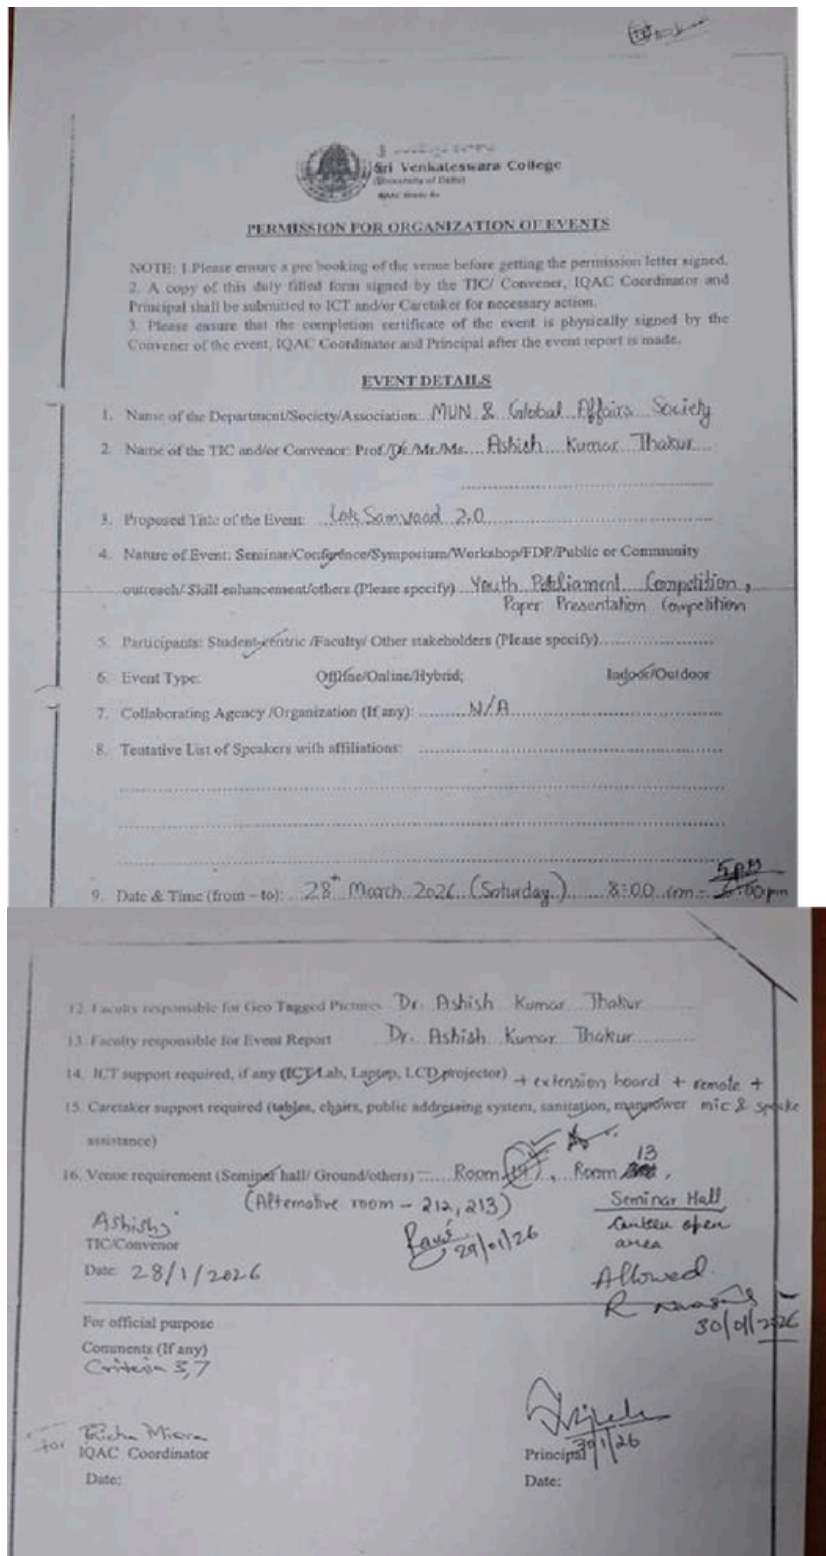 Sri Venkateswara College
(University of Delhi)
PERMISSION FOR ORGANIZATION OF EVENTS
NOTE: 1.Please ensure a pre booking of the venue before getting the permission letter signed.
2. A copy of this duly filled form signed by the TIC/ Convener, IQAC Coordinator and
Principal shall be submitted to ICT and/or Caretaker for necessary action.
3. Please ensure that the completion certificate of the event is physically signed by the
Convener of the event, IQAC Coordinator and Principal after the event report is made.
EVENT DETAILS
1. Name of the Department/Society/Association: MUN & Global Affairs Society
2. Name of the TIC and/or Convenor: Prof./Dr./Mr./Ms. Ashish Kumar Thakur
3. Proposed Title of the Event: Lok Samvaad 2.0
4. Nature of Event: Seminar/Conference/Symposium/Workshop/FDP/Public or Community
outreach/ Skill enhancement/others (Please specify) Youth Parliament Competition,
Paper Presentation Competition
5. Participants: Student-centric /Faculty/ Other stakeholders (Please specify)
6. Event Type: Offline/Online/Hybrid; Indoor/Outdoor
7. Collaborating Agency /Organization (If any): N/A
8. Tentative List of Speakers with affiliations:
5 pm
9. Date & Time (from – to): 28th March 2026 (Saturday) 8:00 am - 6:00 pm
12. Faculty responsible for Geo Tagged Pictures Dr. Ashish Kumar Thakur
13. Faculty responsible for Event Report Dr. Ashish Kumar Thakur
14. ICT support required, if any (ICT Lab, Laptop, LCD projector) + extension board + remote +
15. Caretaker support required (tables, chairs, public addressing system, sanitation, manpower mic & speake
assistance)
13
16. Venue requirement (Seminar hall/ Ground/others) Room, Room,
(Alternative room – 212, 213) Seminar Hall
Canteen open
area
Ashish
TIC/Convenor
Date: 28/1/2026
Ravi
29/01/26
Allowed
30/01/2026
For official purpose
Comments (If any)
Criteria 3,7
for Richa Misra
IQAC Coordinator
Date:
Principal 30/1/26
Date: